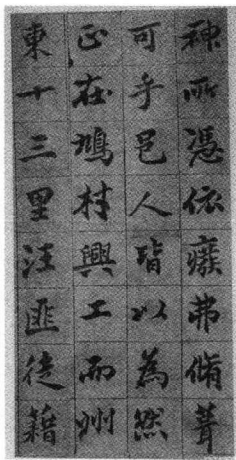 神所憑依癈弗脩葺
可乎邑人皆以為然
正在鳩材興工而州
東十三里汪匪徒籍